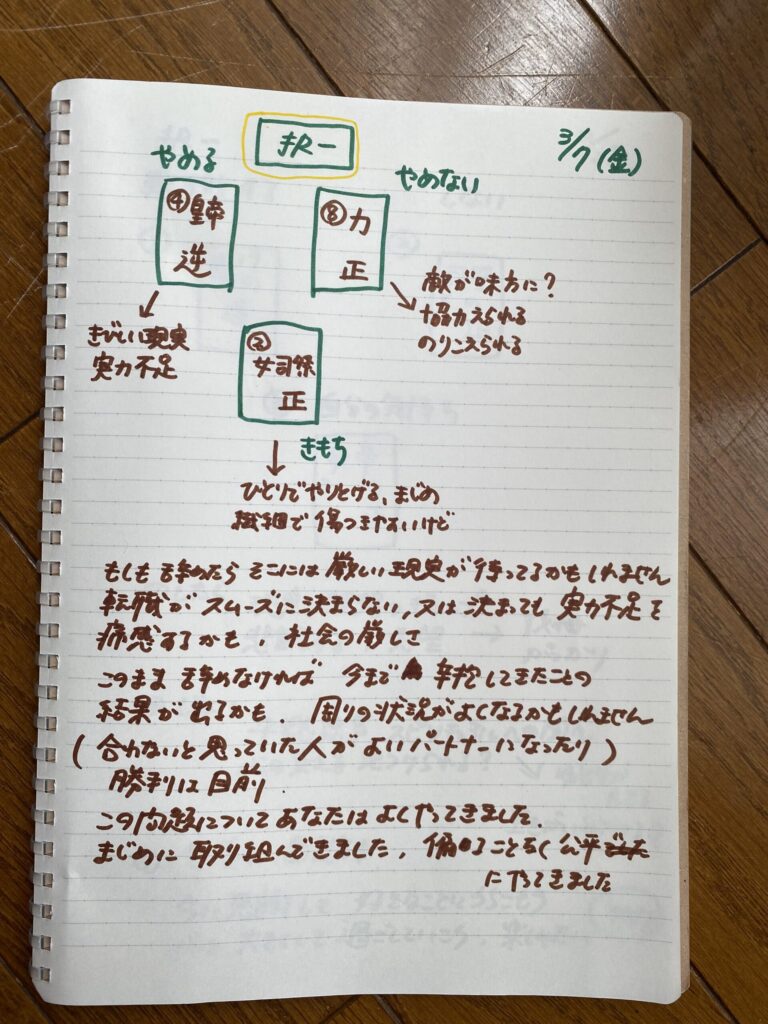 択一
3/7(金)
やめる
やめない
④皇帝
逆
⑧力
正
敵が味方に?
協力えられる
のりこえられる
きびしい現実
実力不足
②
女司祭
正
きもち
ひとりでやりとげる、まじめ
繊細で傷つきやすいけど
もしも辞めたら そこには厳しい現実が待ってるかもしれません
転職がスムーズに決まらない,又は決まっても実力不足を
痛感するかも,社会の厳しさ
このまま辞めなければ 今まで 辛抱してきたことの
結果が出るかも. 周りの状況がよくなるかもしれません
(合わないと思っていた人がよいパートナーになったり)
勝利は目前.
この問題についてあなたはよくやってきました.
まじめに取り組んできました, 偏ることなく公平
にやってきました